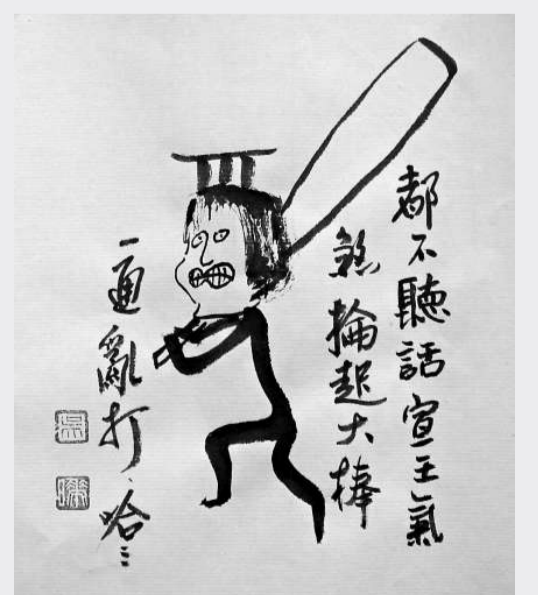 都不聽話宣王氣
煞掄起大棒
一通亂打、哈〻